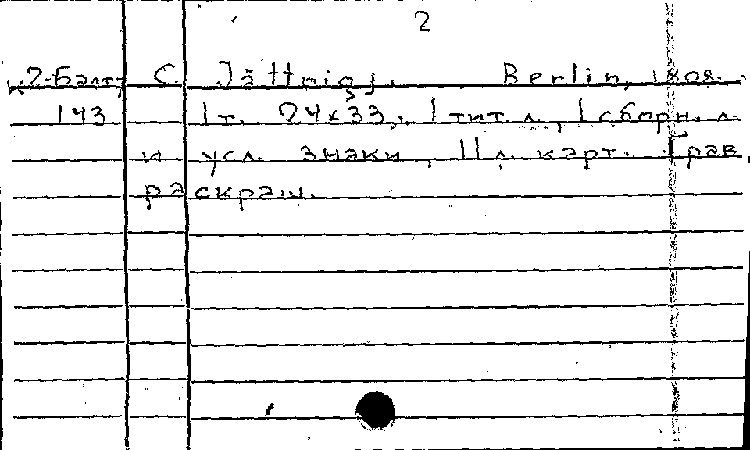 2
К 2-Балт/ С. Jättnig j. Berlin, 1808.
143 1 т. 24x33, 1 тит. л., 1 сборн. л.
и усл. знаки, 11 л. карт. Грав.
раскраш.